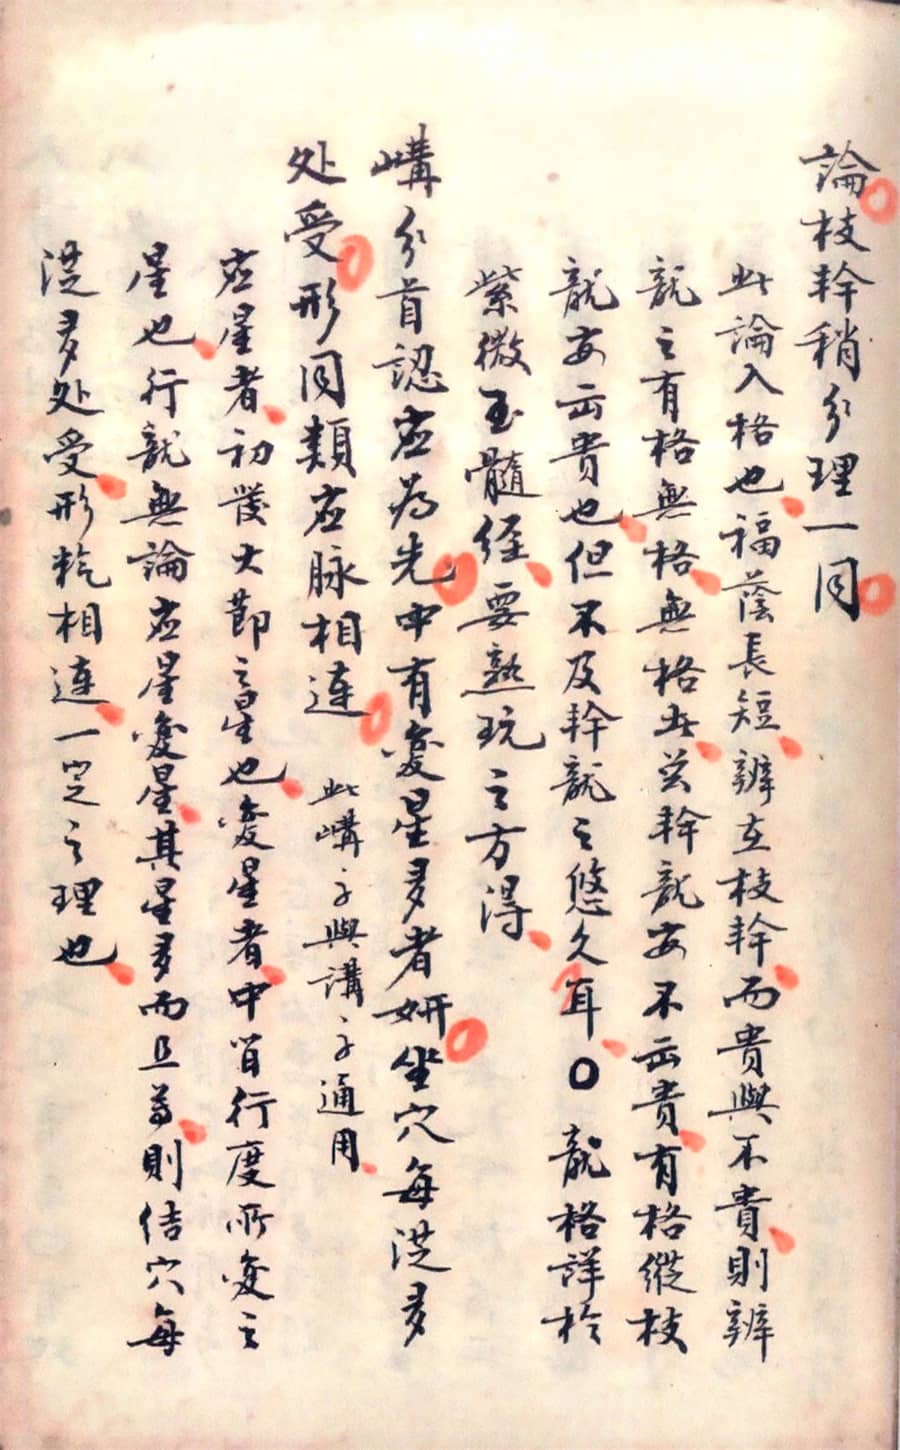 論枝幹稍分理一同
此論入格也福蔭長短辨在枝幹而貴與不貴則辨
龍之有格無格無格此
幹龍安不云貴有格縱枝
龍安云貴也但不及幹龍之悠久耳○龍格詳於
紫微玉髓經要熟玩之方得
嶹分首認应為先中有变星多者妍坐穴每從多
处受形同類应脉相連 此嶹子與講子通用
应星者初發大節之星也变星者中間行度所变之
星也行龍無論应星变星其星多而且尊則结穴每
從多处受形
相連一定之理也